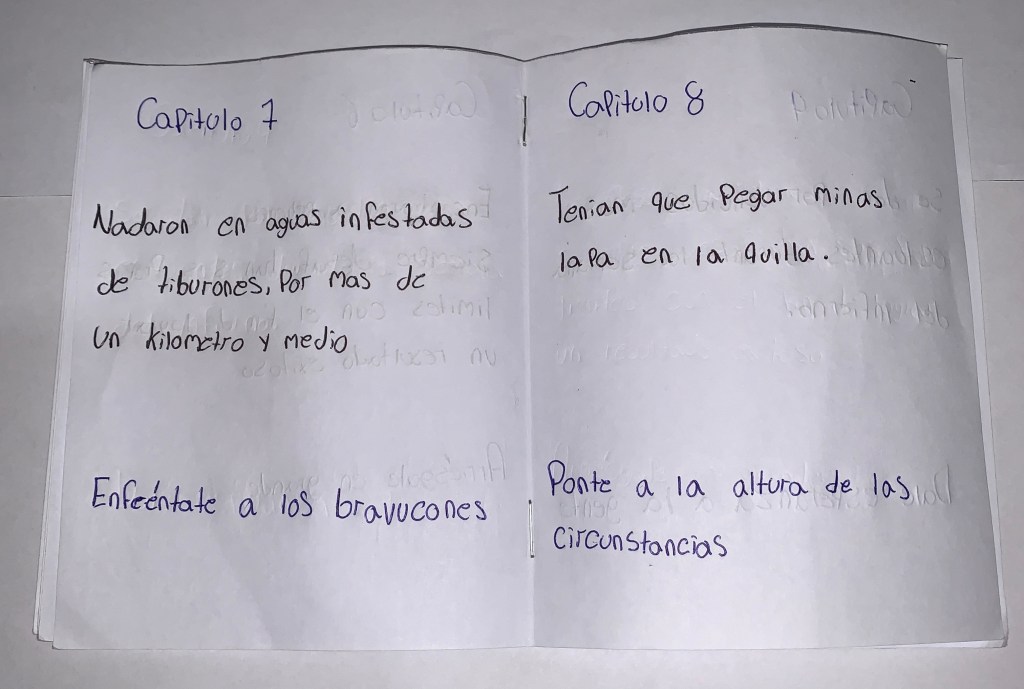 Capitulo 7
Nadaron en aguas infestadas
de tiburones, Por mas de
Un kilometro y medio
Enfréntate a los bravucones
Capitulo 8
Tenian que Pegar minas
lapa en la quilla.
Ponte a la altura de las
circunstancias